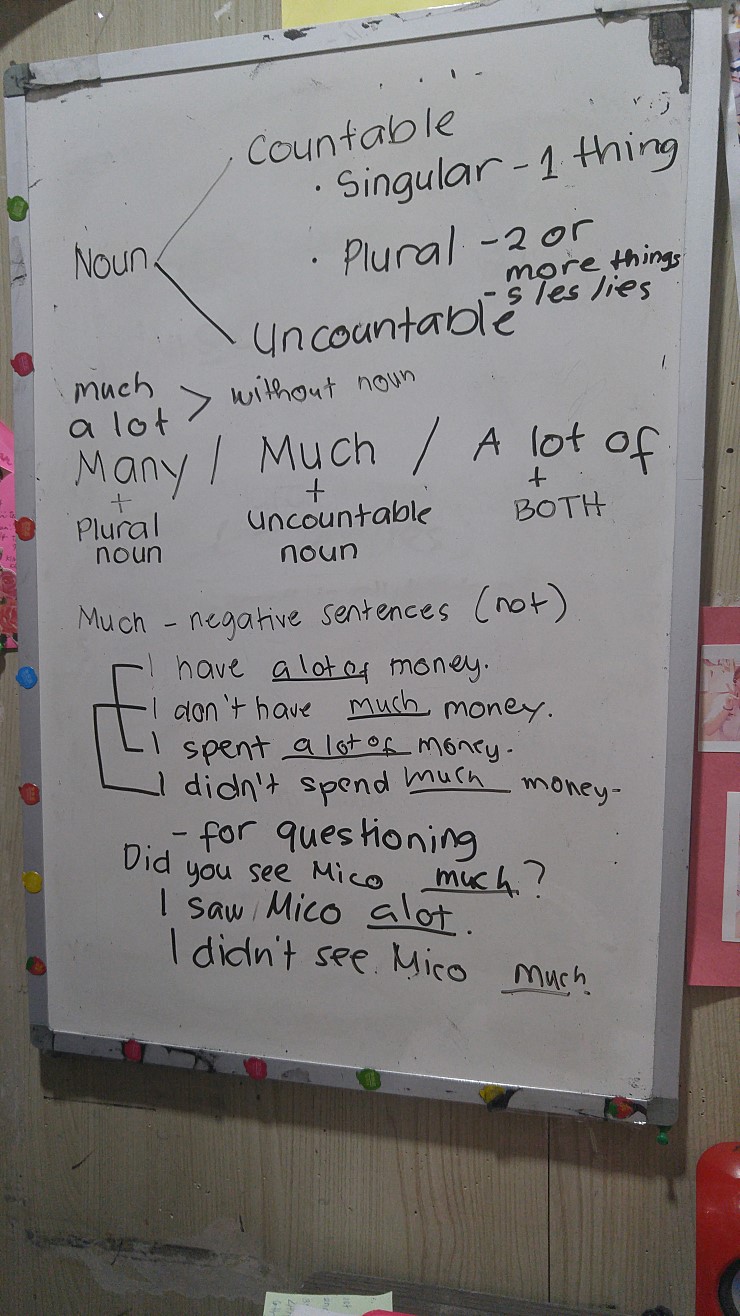 Countable
• Singular - 1 thing
Noun
• Plural - 2 or
more things
- s les lies
Uncountable
much
a lot > without noun
Many / Much / A lot of
+ + +
Plural noun
Uncountable noun
BOTH
Much - negative sentences (not)
I have a lot of money.
I don't have much money.
I spent a lot of money.
I didn't spend much money-
- for questioning
Did you see Mico much?
I saw Mico alot.
I didn't see Mico much.